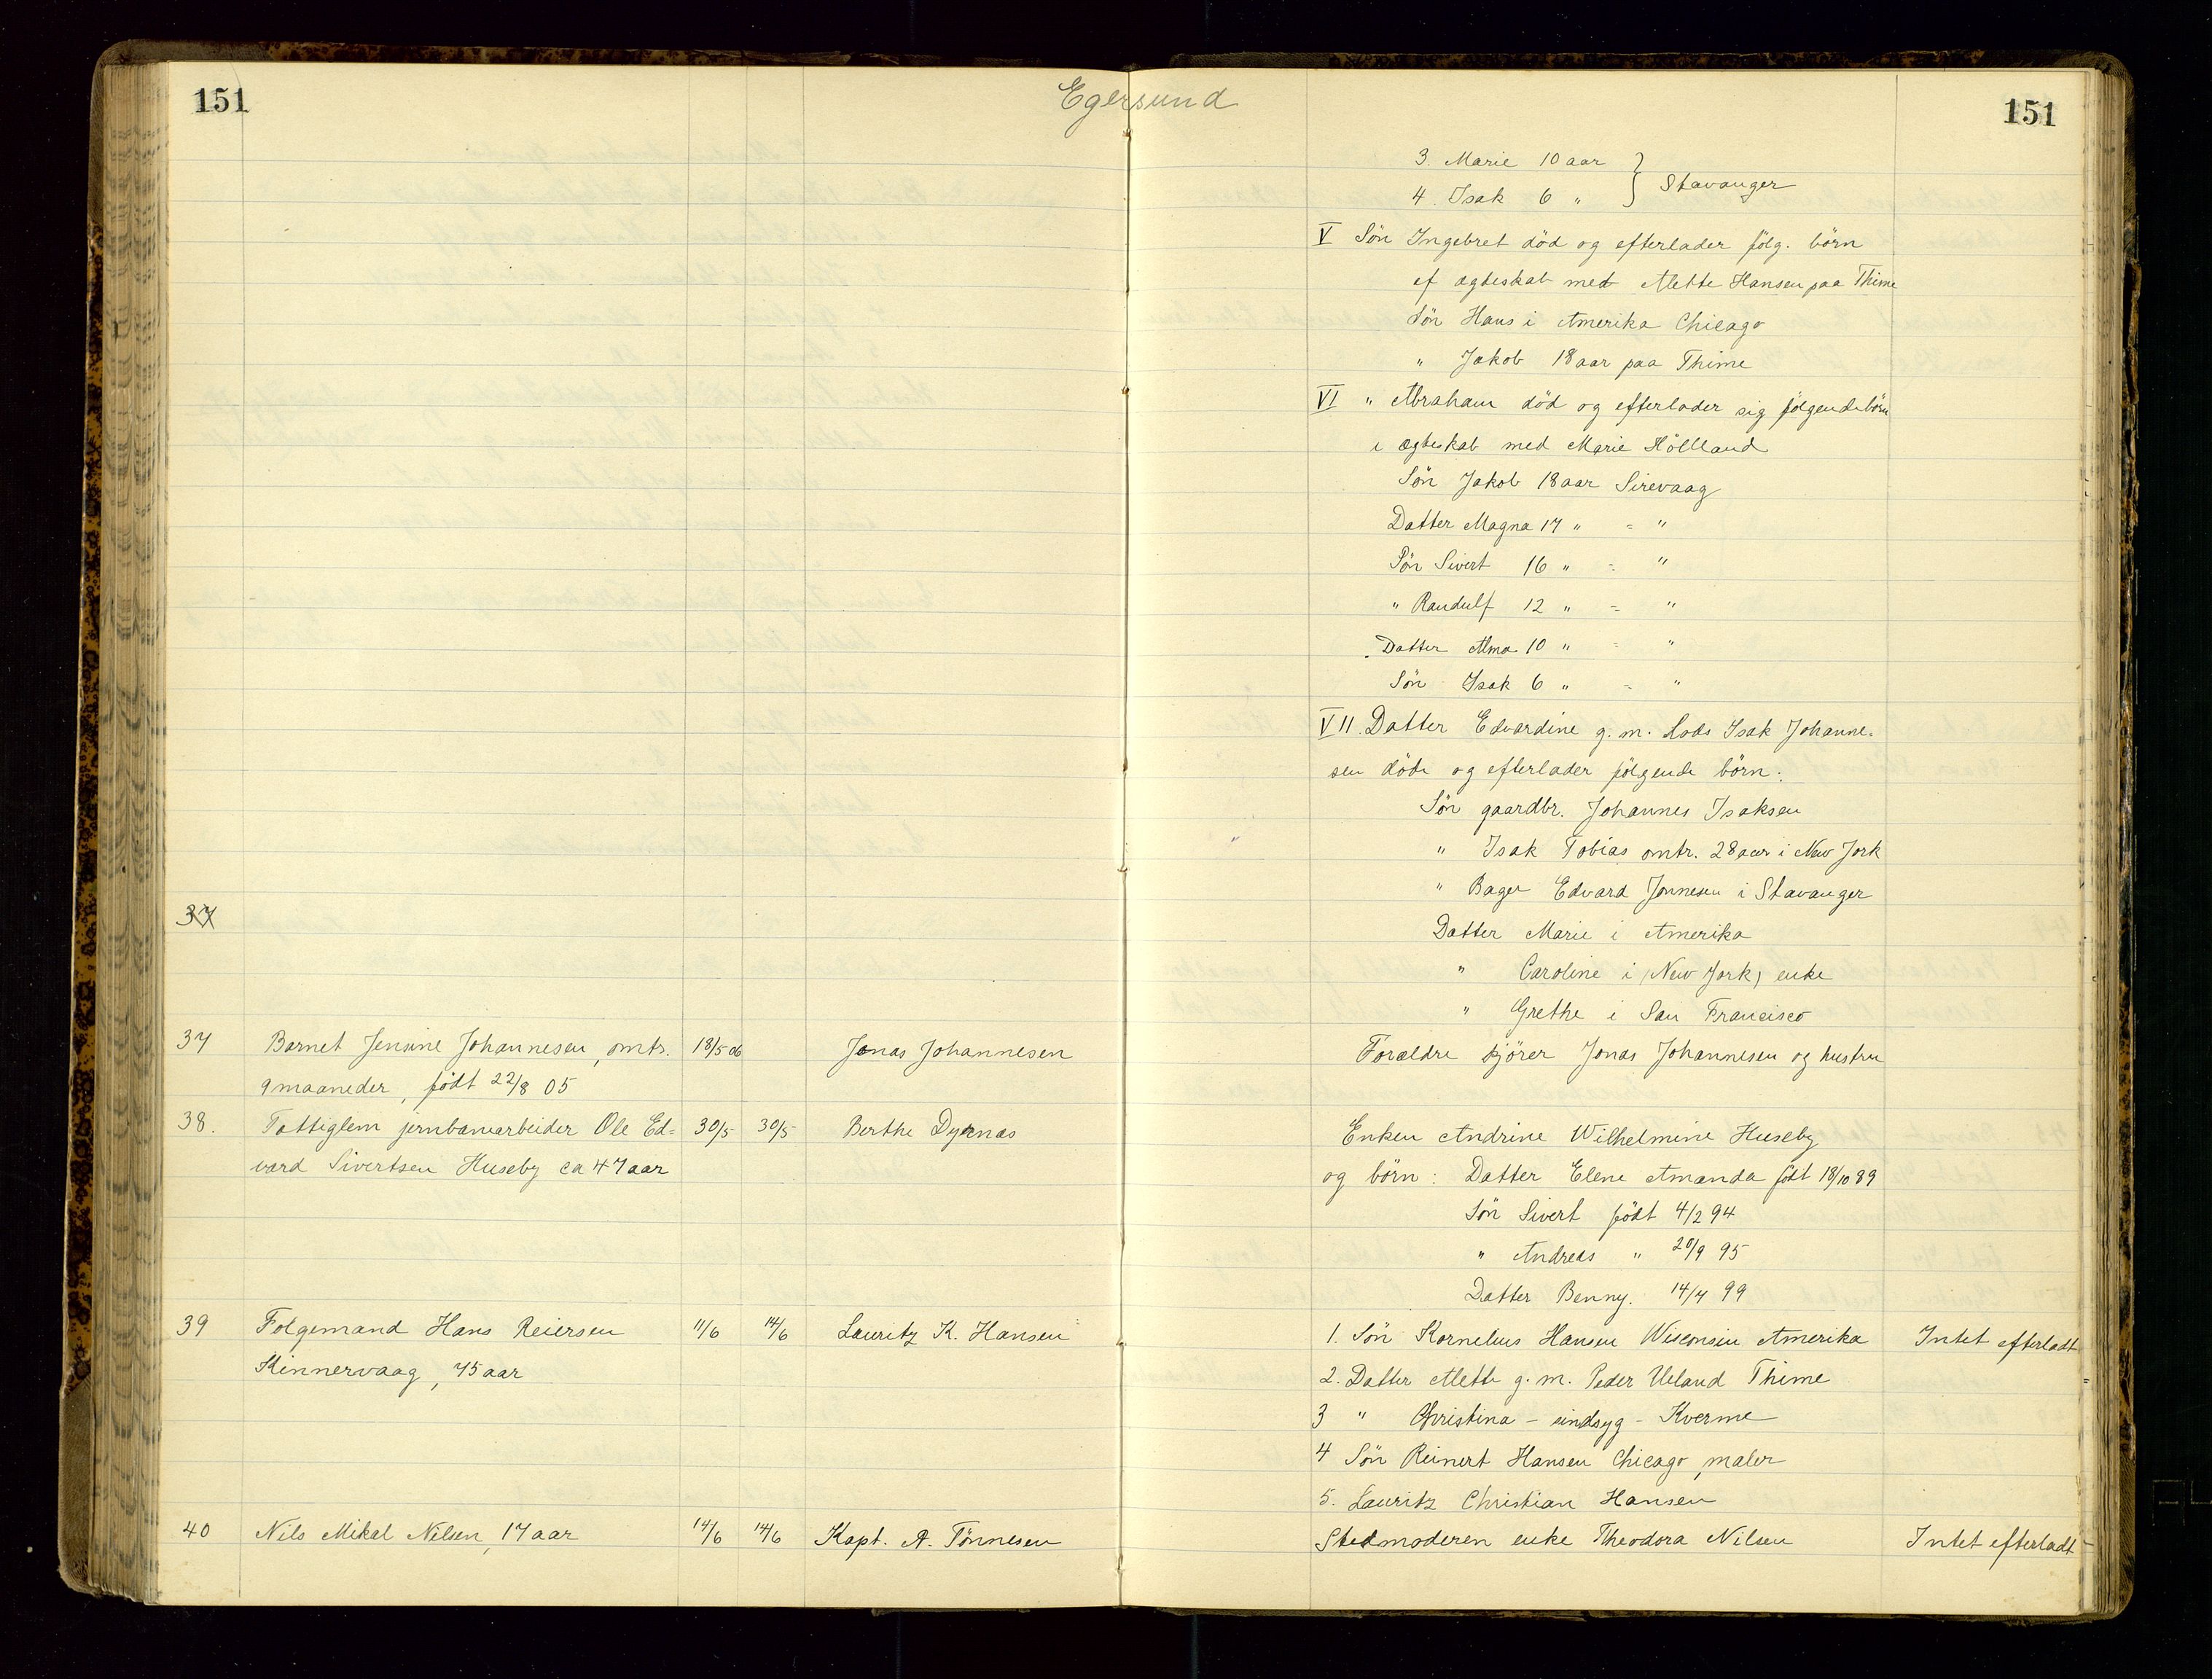 151
Egersund
151
3. Marie 10 aar
4. Isak 6 "
} Stavanger
V Sön Ingebret död og efterlader fölg. börn
af ægteskab med Mette Hansen paa Thime
Sön Hans i Amerika Chicago
" Jakob 18 aar paa Thime
VI " Abraham död og efterlader sig fölgende börn
i ægteskab med Marie Hölland
Sön Jakob 18 aar Sirevaag
Datter Magna 17 " = "
Sön Sivert 16 " = "
" Randulf 12 " = "
Datter Alma 10 " = "
Sön Isak 6 " = "
VII. Datter Edvardine g. m. Lods Isak Johanne-
sen döde og efterlader fölgende börn:
Sön gaardbr. Johannes Isaksen
" Isak Tobias omtr. 28 aar i New Jork
" Bager Edvard Jonnesen i Stavanger
37
Datter Marie i Amerika
" Caroline i (New Jork) enke
" Grethe i San Francisco
37 Barnet Jensine Johannesen, omtr. 18/5 06 Jonas Johannesen Forældre kjörer Jonas Johannesen og hustru
9 maaneder, födt 22/8 05
38. Fattiglem jernbanearbeider Ole Ed= 30/5 30/5 Berthe Dyrnas Enken Andrine Wilhelmine Huseby
vard Sivertsen Huseby ca 47 aar og börn: Datter Elene Amanda födt 18/10 89
Sön Sivert födt 4/2 94
" Andreas " 20/9 95
Datter Benny. 14/7 99
39 Folgemand Hans Reiersen 11/6 14/6 Lauritz K. Hansen 1. Sön Kornelius Hansen Wisconsin Amerika Intet efterladt
Kinnervaag, 75 aar 2. Datter Mette g. m. Peder Ueland Thime
3 " Christina - sindsyg - Kverme
4 Sön Reinert Hansen Chicago, maler
5. Lauritz Christian Hansen
40 Nils Mikal Nilsen, 17 aar 14/6 14/6 Kapt. A. Tönnesen Stedmoderen enke Theodora Nilsen Intet efterladt